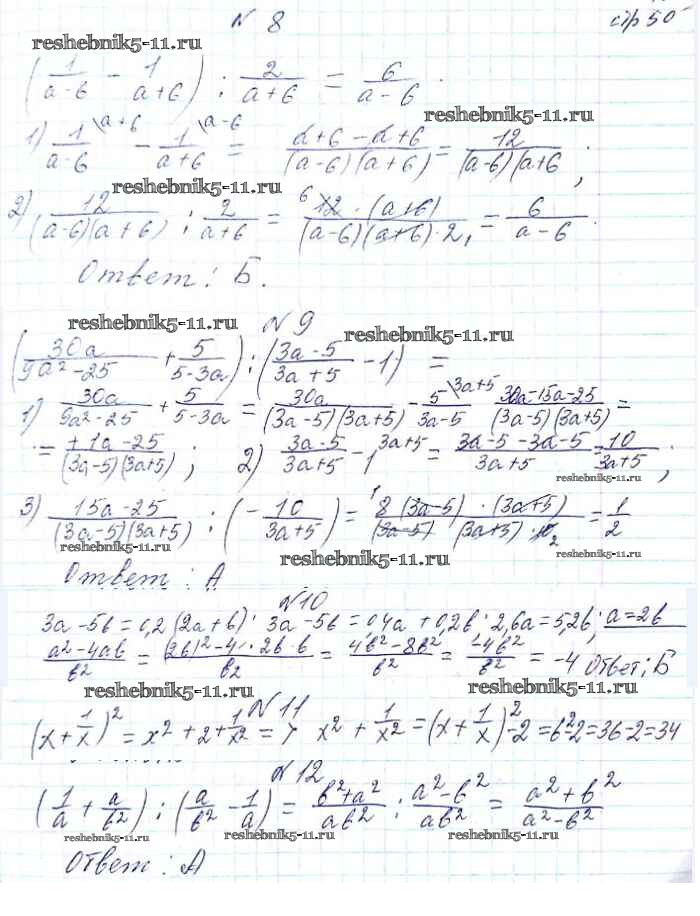 N 8 стр 50
reshebnik5-11.ru
(1/(a-6) - 1/(a+6)) : 2/(a+6) = 6/(a-6).
reshebnik5-11.ru
1) 1/(a-6) \a+6 - 1/(a+6) \a-6 = (a+6-a+6)/((a-6)(a+6)) = 12/((a-6)(a+6 ;
reshebnik5-11.ru
2) 12/((a-6)(a+6)) : 2/(a+6) = 6 12·(a+6)/((a-6)(a+6)·2, = 6/(a-6).
Ответ: Б.
reshebnik5-11.ru N 9 reshebnik5-11.ru
(30a/(9a²-25) + 5/(5-3a)) : ((3a-5)/(3a+5) - 1) =
1) 30a/(9a²-25) + 5/(5-3a) = 30a/((3a-5)(3a+5)) - 5/(3a-5) \3a+5 (30a-15a-25)/((3a-5)(3a+5)) =
= (+1a-25)/((3a-5)(3a+5)) ; 2) (3a-5)/(3a+5) - 1 \3a+5 = (3a-5-3a-5)/(3a+5) = 10/(3a+5) ;
reshebnik5-11.ru
3) (15a-25)/((3a-5)(3a+5)) : (-10/(3a+5)) = 1 8(3a-5)·(3a+5)/((3a-5)(3a+5)·10 2 = 1/2
reshebnik5-11.ru reshebnik5-11.ru reshebnik5-11.ru
Ответ: А
N 10
3a-5b=0,2(2a+6); 3a-5b=0,4a+0,2b; 2,6a=5,2b; a=2b
(a²-4ab)/b² = ((2b)²-4·2b·b)/b² = (4b²-8b²)/b² = -4b²/b² = -4 Ответ: Б
reshebnik5-11.ru reshebnik5-11.ru
N 11
(x+1/x)² = x²+2+1/x² => x²+1/x² = (x+1/x)²-2=6²-2=36-2=34
reshebnik5-11.ru reshebnik5-11.ru
N 12
(1/a + a/b²) : (a/b² - 1/a) = (b²+a²)/ab² : (a²-b²)/ab² = (a²+b²)/(a²-b²)
reshebnik5-11.ru reshebnik5-11.ru reshebnik5-11.ru
Ответ: А